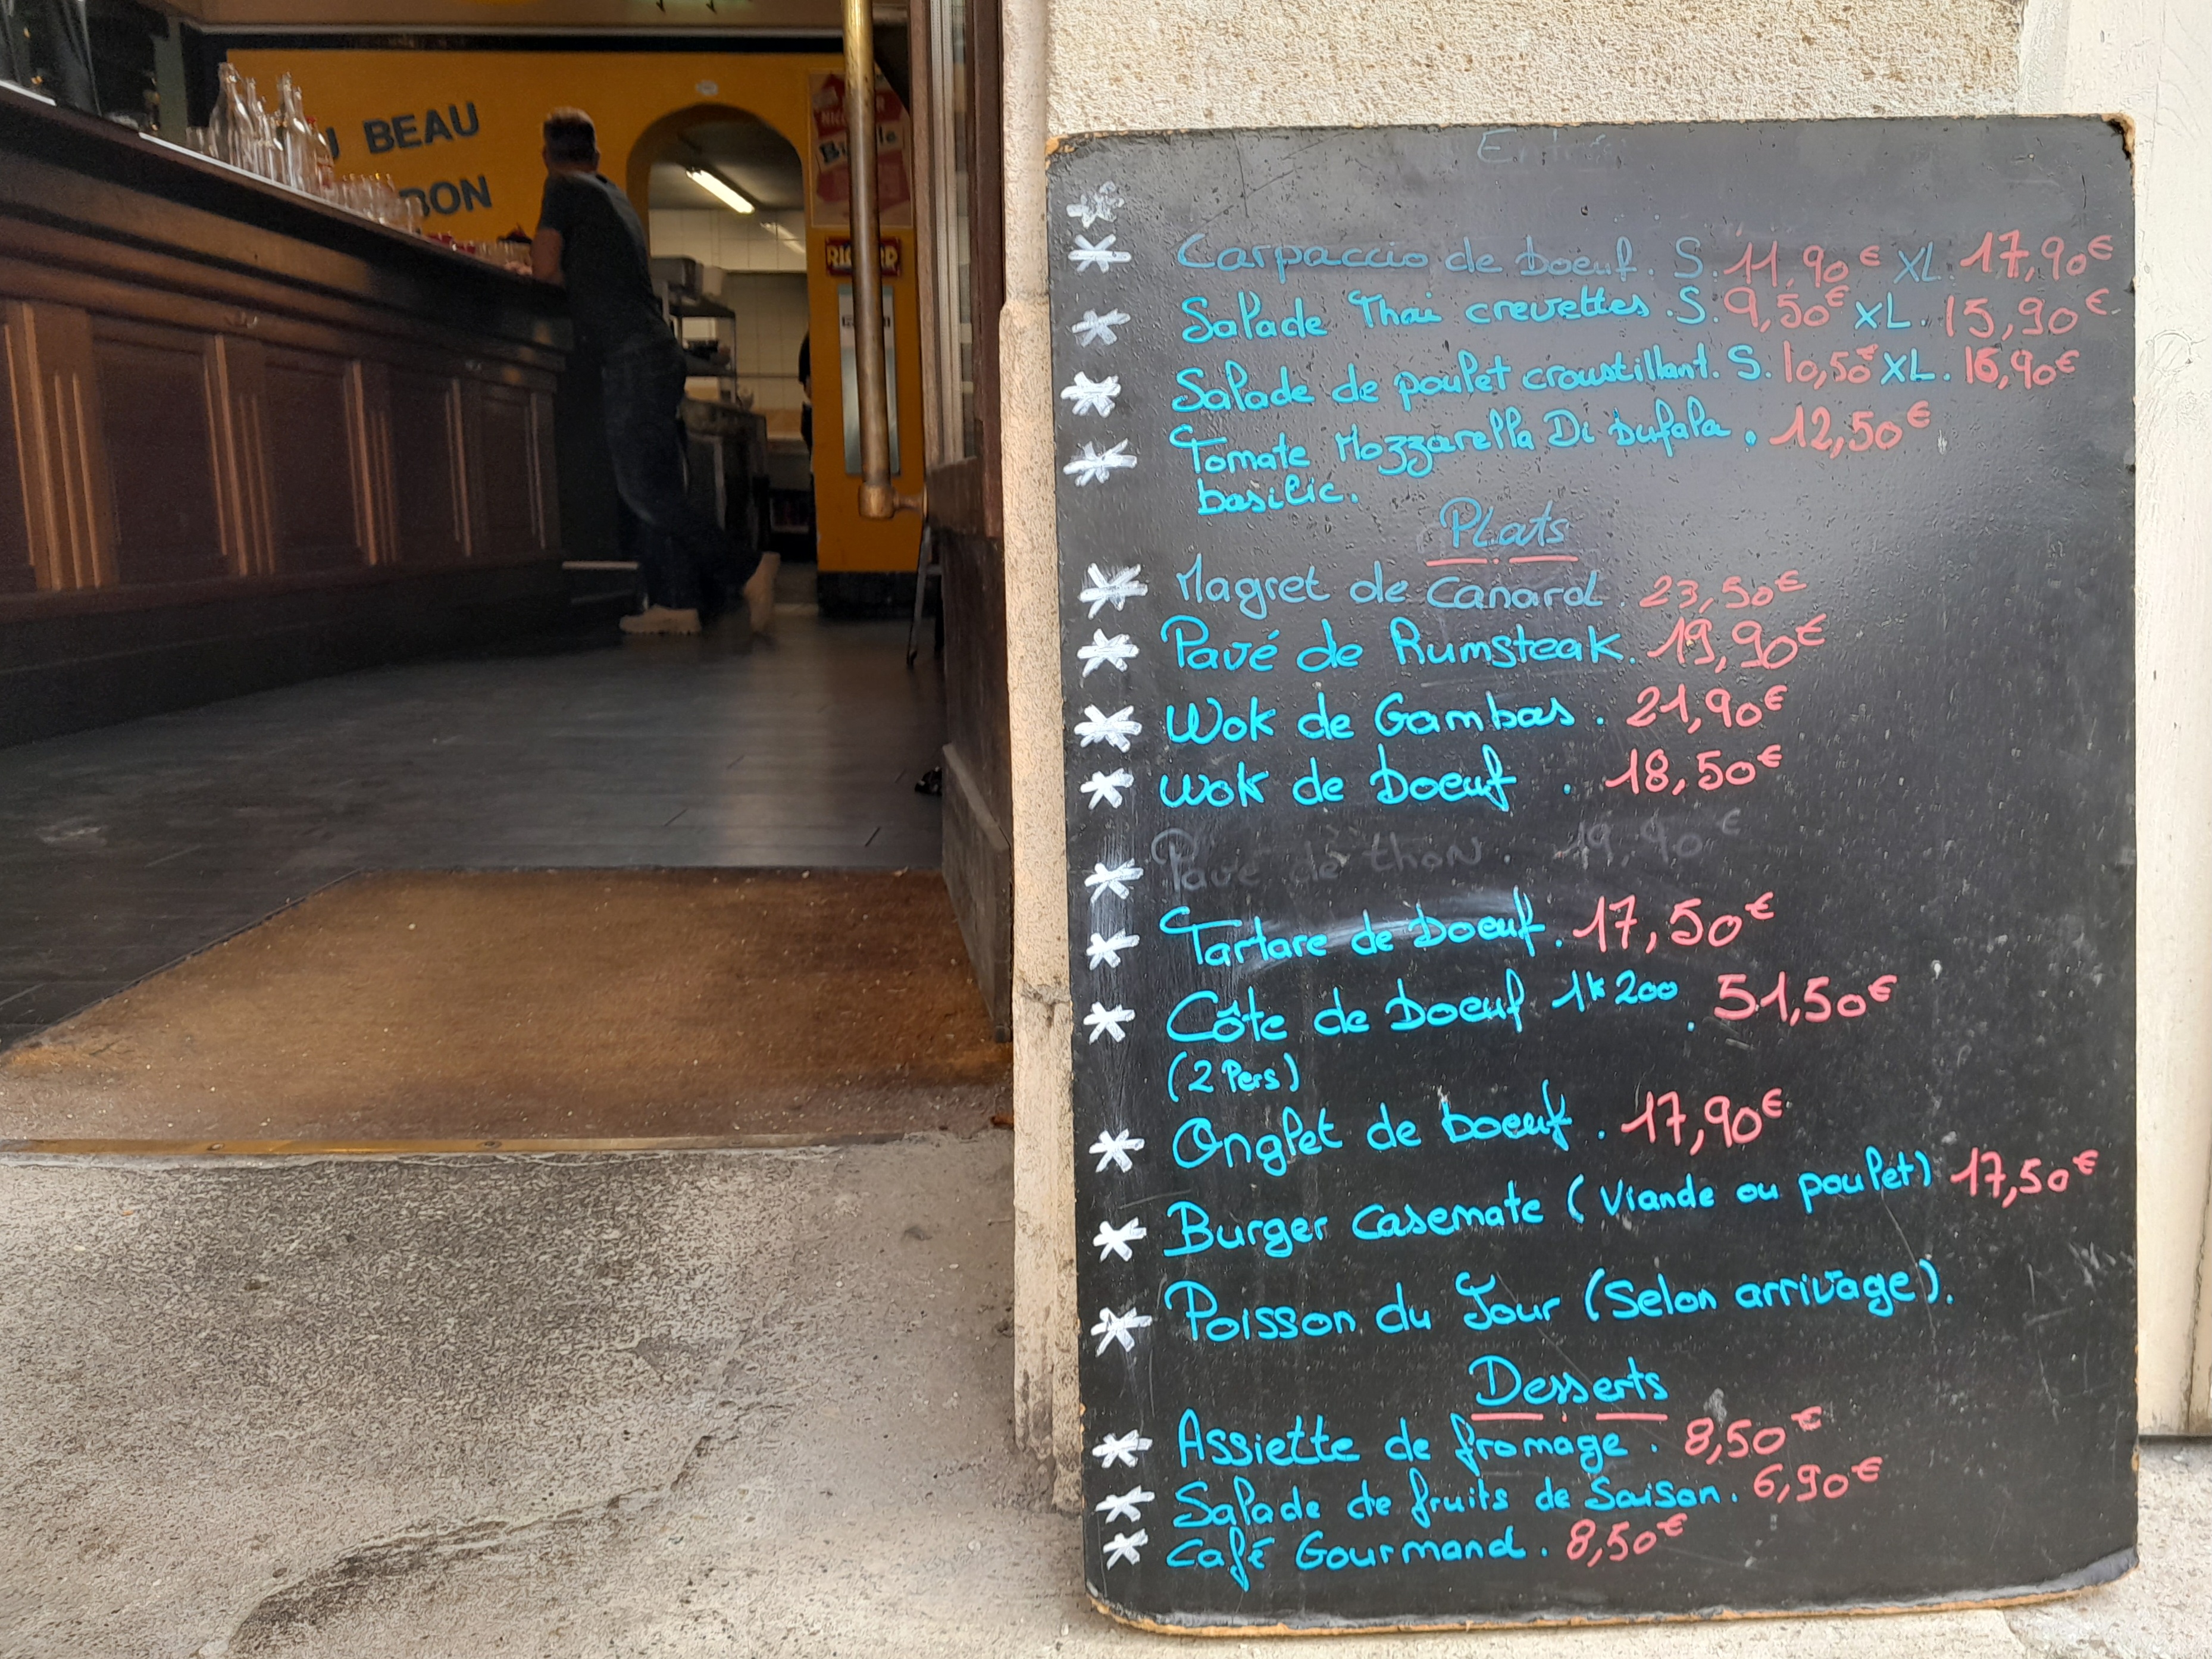 BEAU
BON
RICARD
Entré
Carpaccio de boeuf. S. 11,90€ XL. 17,90€
Salade Thai crevettes. S. 9,50€ XL. 15,90€
Salade de poulet croustillant. S. 10,50€ XL. 16,90€
Tomate Mozzarella Di Bufala. 12,50€
basilic.
Plats
Magret de Canard. 23,50€
Pavé de Rumsteak. 19,90€
Wok de Gambas. 21,90€
Wok de boeuf. 18,50€
Pavé de thon. 19,90€
Tartare de boeuf. 17,50€
Côte de boeuf 1k200. 51,50€
(2 Pers)
Onglet de boeuf. 17,90€
Burger Casemate (Viande ou poulet) 17,50€
Poisson du Jour (Selon arrivage).
Desserts
Assiette de fromage. 8,50€
Salade de fruits de Saison. 6,90€
Café Gourmand. 8,50€